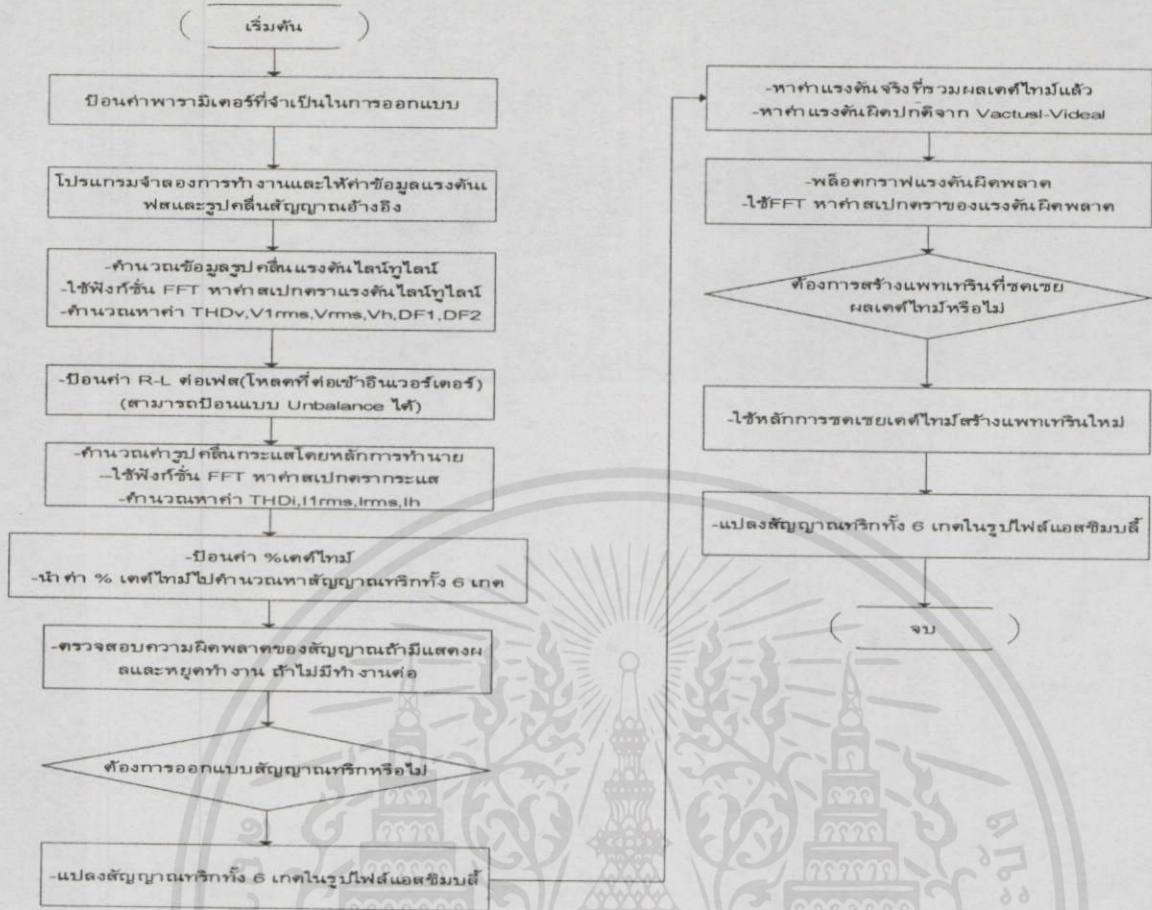 เริ่มต้น
ป้อนค่าพารามิเตอร์ที่จำเป็นในการออกแบบ
โปรแกรมจำลองการทำงานและให้ค่าข้อมูลแรงดันเ
ฟสและรูปคลื่นสัญญาณอ้างอิง
-คำนวณข้อมูลรูปคลื่นแรงดันไลน์ทูไลน์
-ใช้ฟังก์ชั่น FFT หาค่าสเปกตราแรงดันไลน์ทูไลน์
-คำนวณหาค่า THDv,V1rms,Vrms,Vh,DF1,DF2
-ป้อนค่า R-L ต่อเฟส(โหลดที่ต่อเข้าอินเวอร์เตอร์)
(สามารถป้อนแบบ Unbalance ได้)
-คำนวณค่ารูปคลื่นกระแสโดยหลักการทำนาย
--ใช้ฟังก์ชั่น FFT หาค่าสเปกตรากระแส
-คำนวณหาค่า THDi,I1rms,Irms,Ih
-ป้อนค่า %เดด์ไทม์
-นำค่า % เดด์ไทม์ไปคำนวณหาสัญญาณทริกทั้ง 6 เกต
-ตรวจสอบความผิดพลาดของสัญญาณถ้ามีแสดงผ
ลและหยุดทำงาน ถ้าไม่มีทำงานต่อ
ต้องการออกแบบสัญญาณทริกหรือไม่
-แปลงสัญญาณทริกทั้ง 6 เกตในรูปไฟล์แอสซิมบลี้
-หาค่าแรงดันจริงที่รวมผลเดด์ไทม์แล้ว
-หาค่าแรงดันผิดปกติจาก Vactusl-Videal
-พล็อตกราฟแรงดันผิดพลาด
-ใช้FFT หาค่าสเปกตราของแรงดันผิดพลาด
ต้องการสร้างแพทเทรินที่ชดเชย
ผลเดด์ไทม์หรือไม่
-ใช้หลักการชดเชยเดด์ไทม์สร้างแพทเทรินใหม่
-แปลงสัญญาณทริกทั้ง 6 เกตในรูปไฟล์แอสซิมบลี้
จบ